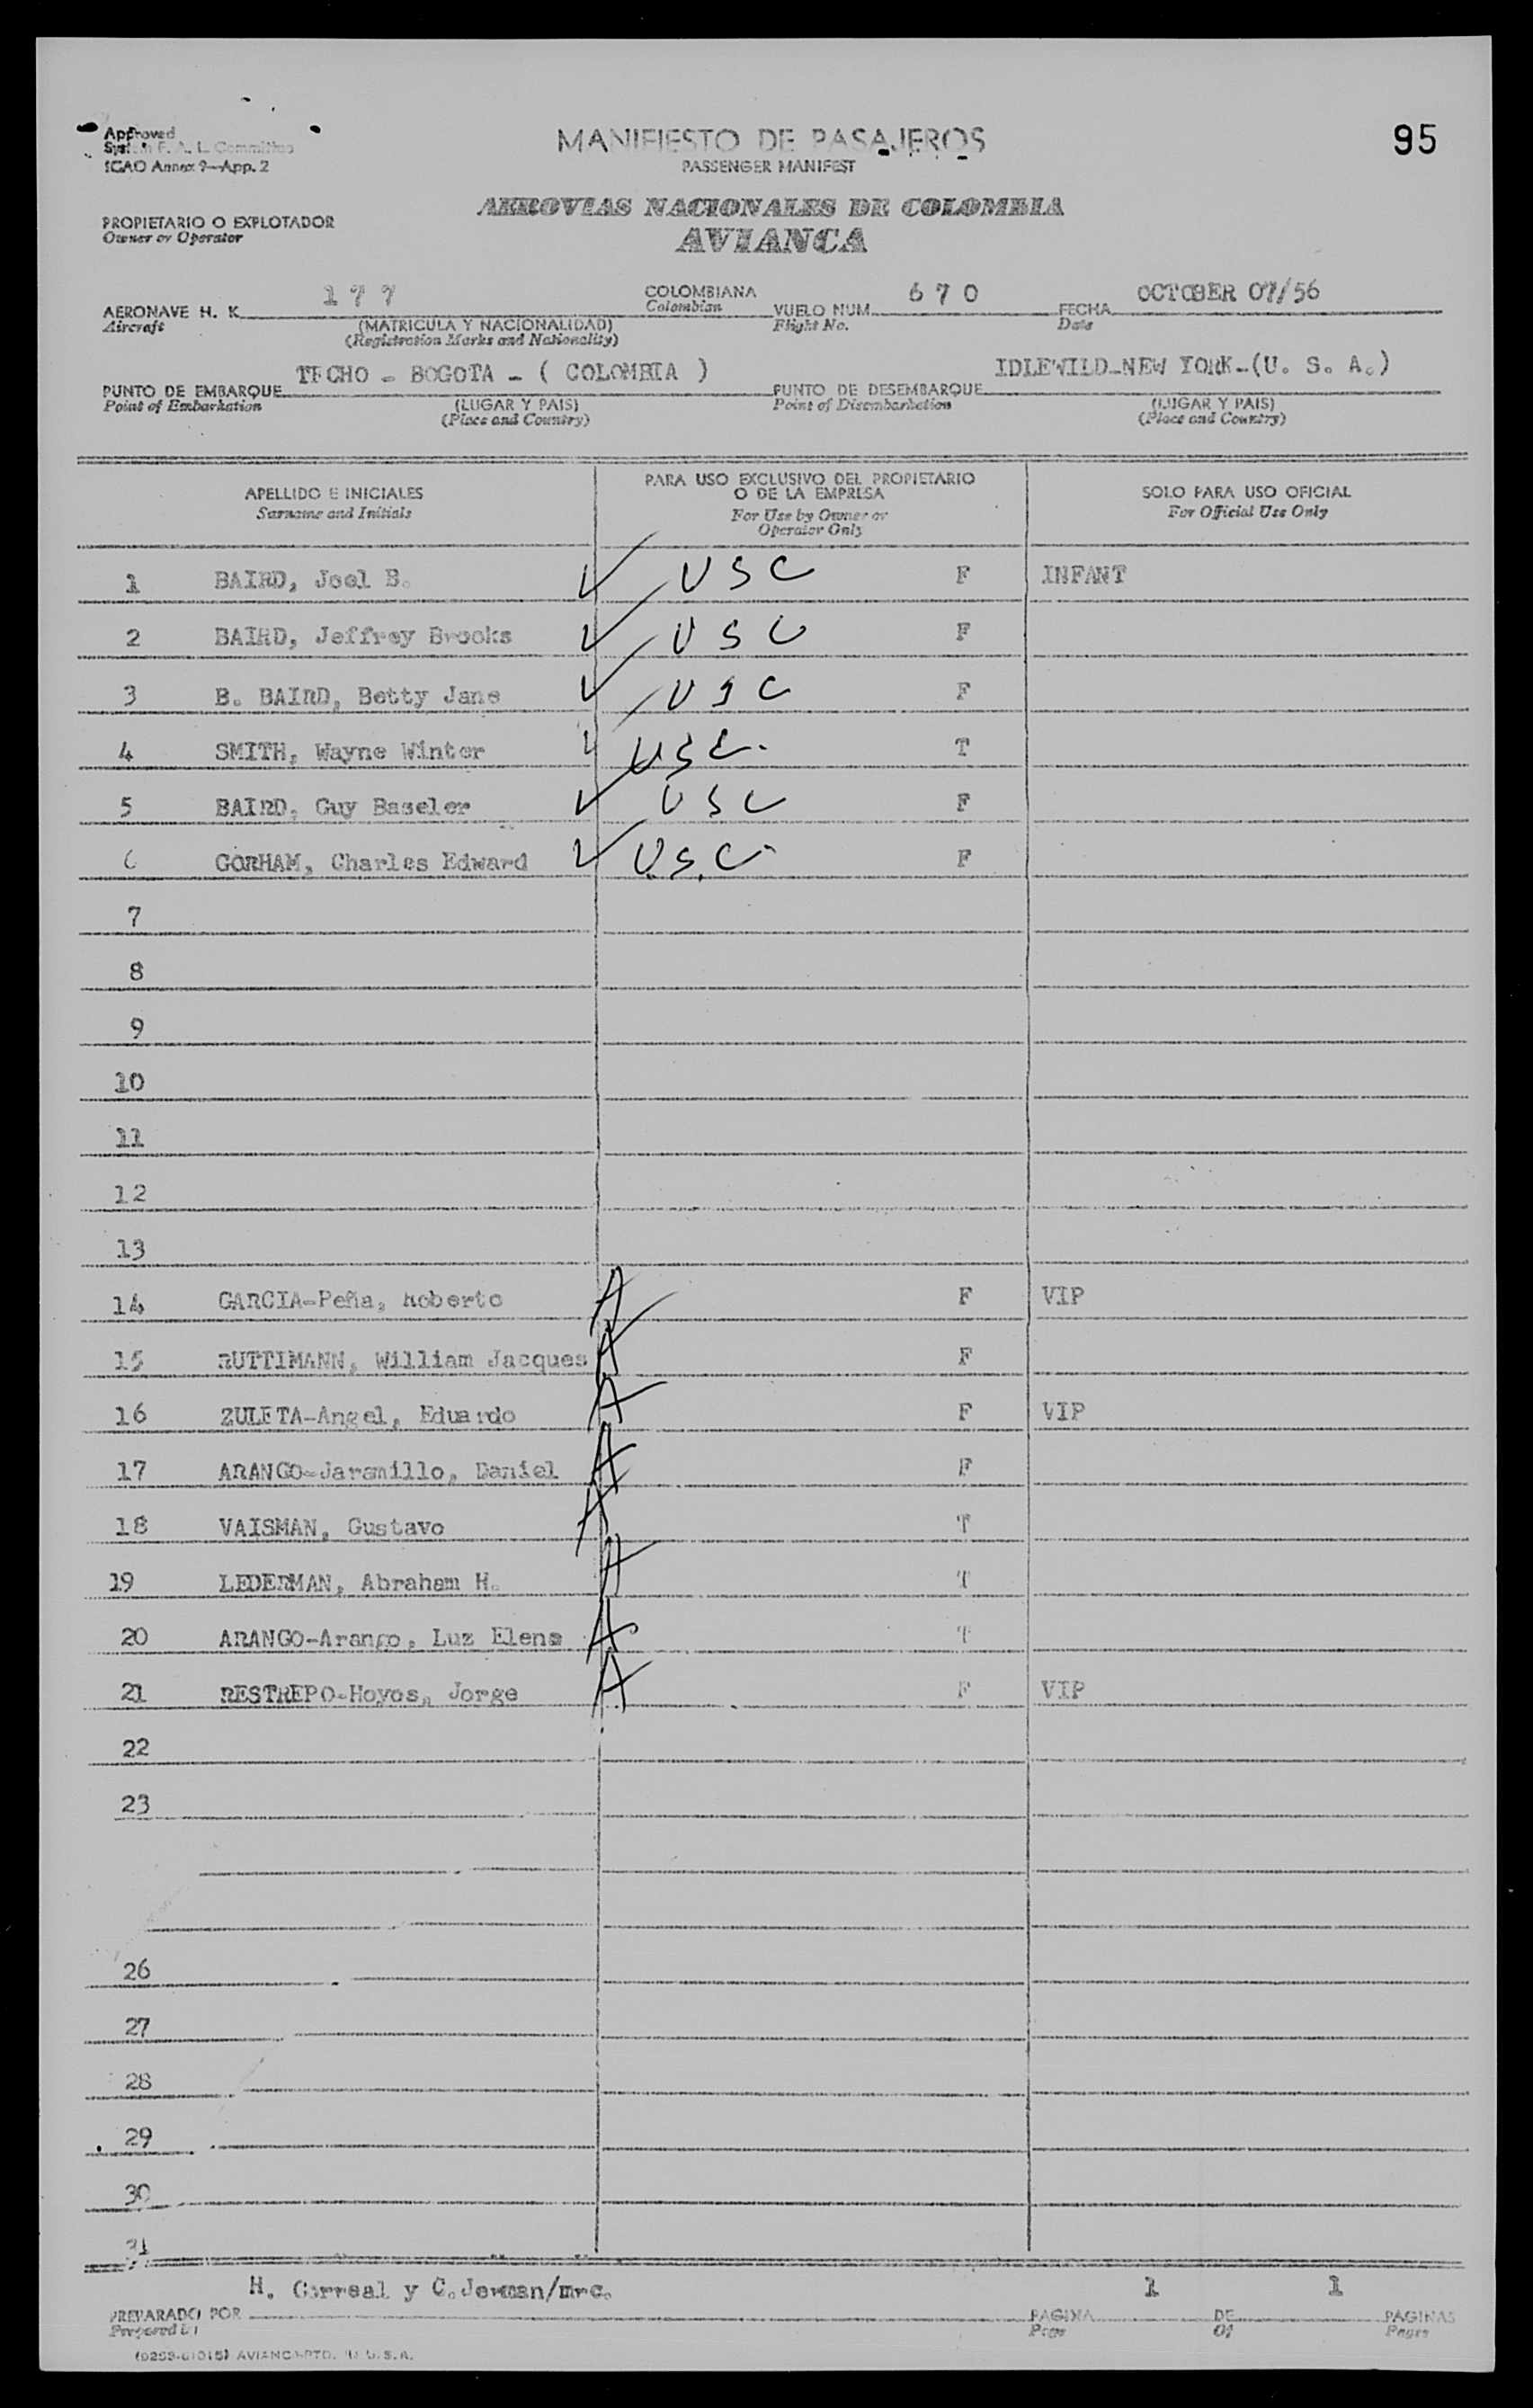 Approved
System F. A. L. Committee
ICAO Annex 9—App. 2
MANIFIESTO DE PASAJEROS
PASSENGER MANIFEST
95
AEROVIAS NACIONALES DE COLOMBIA
AVIANCA
PROPIETARIO O EXPLOTADOR
Owner or Operator
AERONAVE H. K. 177 COLOMBIANA VUELO NUM. 670 FECHA OCTOBER 07/56
Aircraft (MATRICULA Y NACIONALIDAD) Colombian Flight No. Date
(Registration Marks and Nationality)
PUNTO DE EMBARQUE TECHO - BOGOTA - ( COLOMBIA ) PUNTO DE DESEMBARQUE IDLEWILD-NEW YORK-(U. S. A.)
Point of Embarkation (LUGAR Y PAIS) Point of Disembarkation (LUGAR Y PAIS)
(Place and Country) (Place and Country)
APELLIDO E INICIALES PARA USO EXCLUSIVO DEL PROPIETARIO SOLO PARA USO OFICIAL
Surname and Initials O DE LA EMPRESA For Official Use Only
For Use by Owner or
Operator Only
1 BAIRD, Joel B. USC F INFANT
2 BAIRD, Jeffrey Brooks USC F
3 B. BAIRD, Betty Jane USC F
4 SMITH, Wayne Winter USC. T
5 BAIRD, Guy Baseler USC F
6 GORHAM, Charles Edward U.S.C. F
7
8
9
10
11
12
13
14 GARCIA-Peña, Roberto A F VIP
15 RUTTIMANN, William Jacques A F
16 ZULETA-Angel, Eduardo A F VIP
17 ARANGO-Jaramillo, Daniel A F
18 VAISMAN, Gustavo A T
19 LEDERMAN, Abraham H. A T
20 ARANGO-Arango, Luz Elena A T
21 RESTREPO-Hoyos, Jorge A F VIP
22
23
26
27
28
29
30
31
H. Correal y C. Jerman/mrc. 1 1
PREPARADO POR PAGINA DE PAGINAS
Prepared by Page Of Pages
AVIANCA-PTD. IN U.S.A.